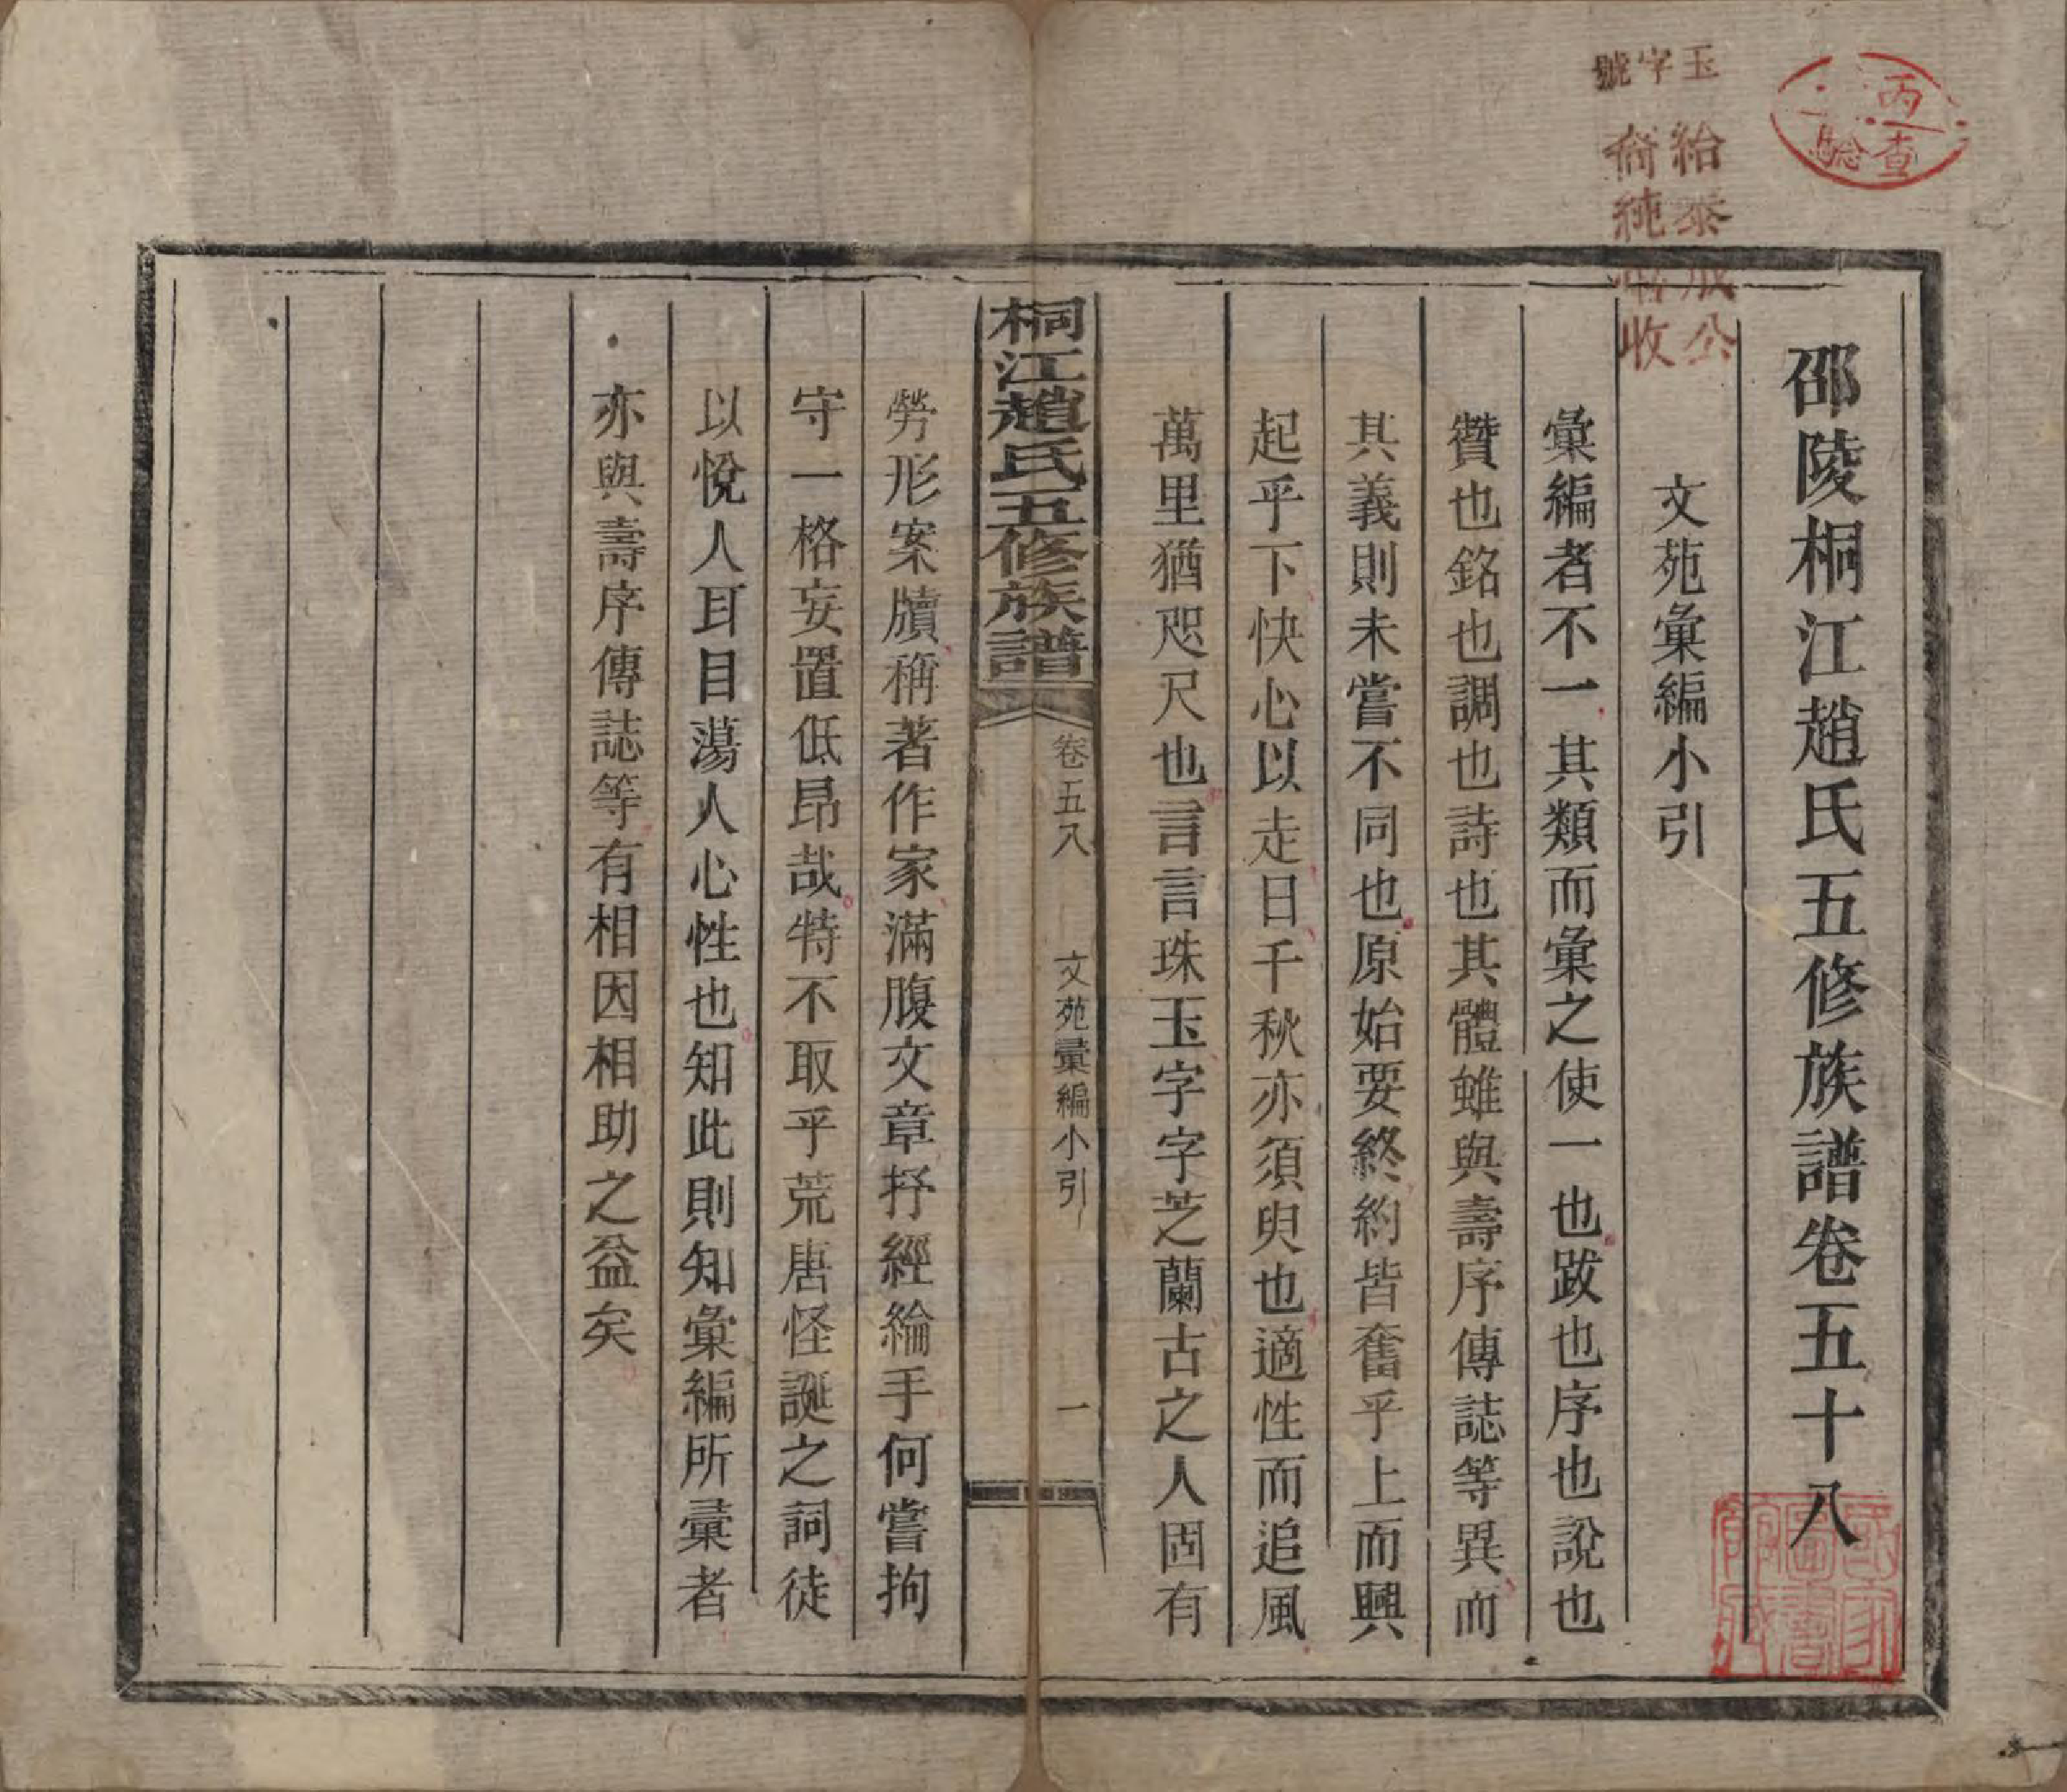 邵陵桐江趙氏五修族譜卷五十八
文苑彙編小引
彙編者不一其類而彙之使一也跋也序也說也
贊也銘也調也詩也其體雖與壽序傳誌等異而
其義則未嘗不同也原始要終約皆奮乎上而興
起乎下快心以走日千秋亦須臾也適性而追風
萬里猶咫尺也言言珠玉字字芝蘭古之人固有
桐江趙氏五修族譜
卷五八
文苑彙編小引
一
勞形案牘稱著作家滿腹文章抒經綸手何嘗拘
守一格妄置低昂哉特不取乎荒唐怪誕之詞徒
以悅人耳目蕩人心性也知此則知彙編所彙者
亦與壽序傳誌等有相因相助之益矣
丙
查驗
玉字號
紿泰成公
裔純收
國家圖書館藏